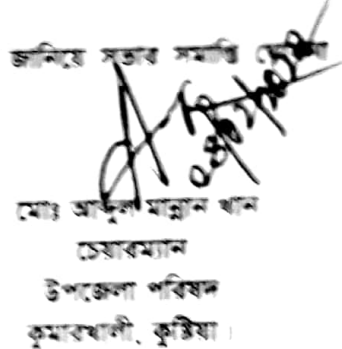 জানিয়ে সভার সমাপ্তি
মোঃ আব্দুল মান্নান খান
চেয়ারম্যান
উপজেলা পরিষদ
কুমারখালী, কুষ্টিয়া।